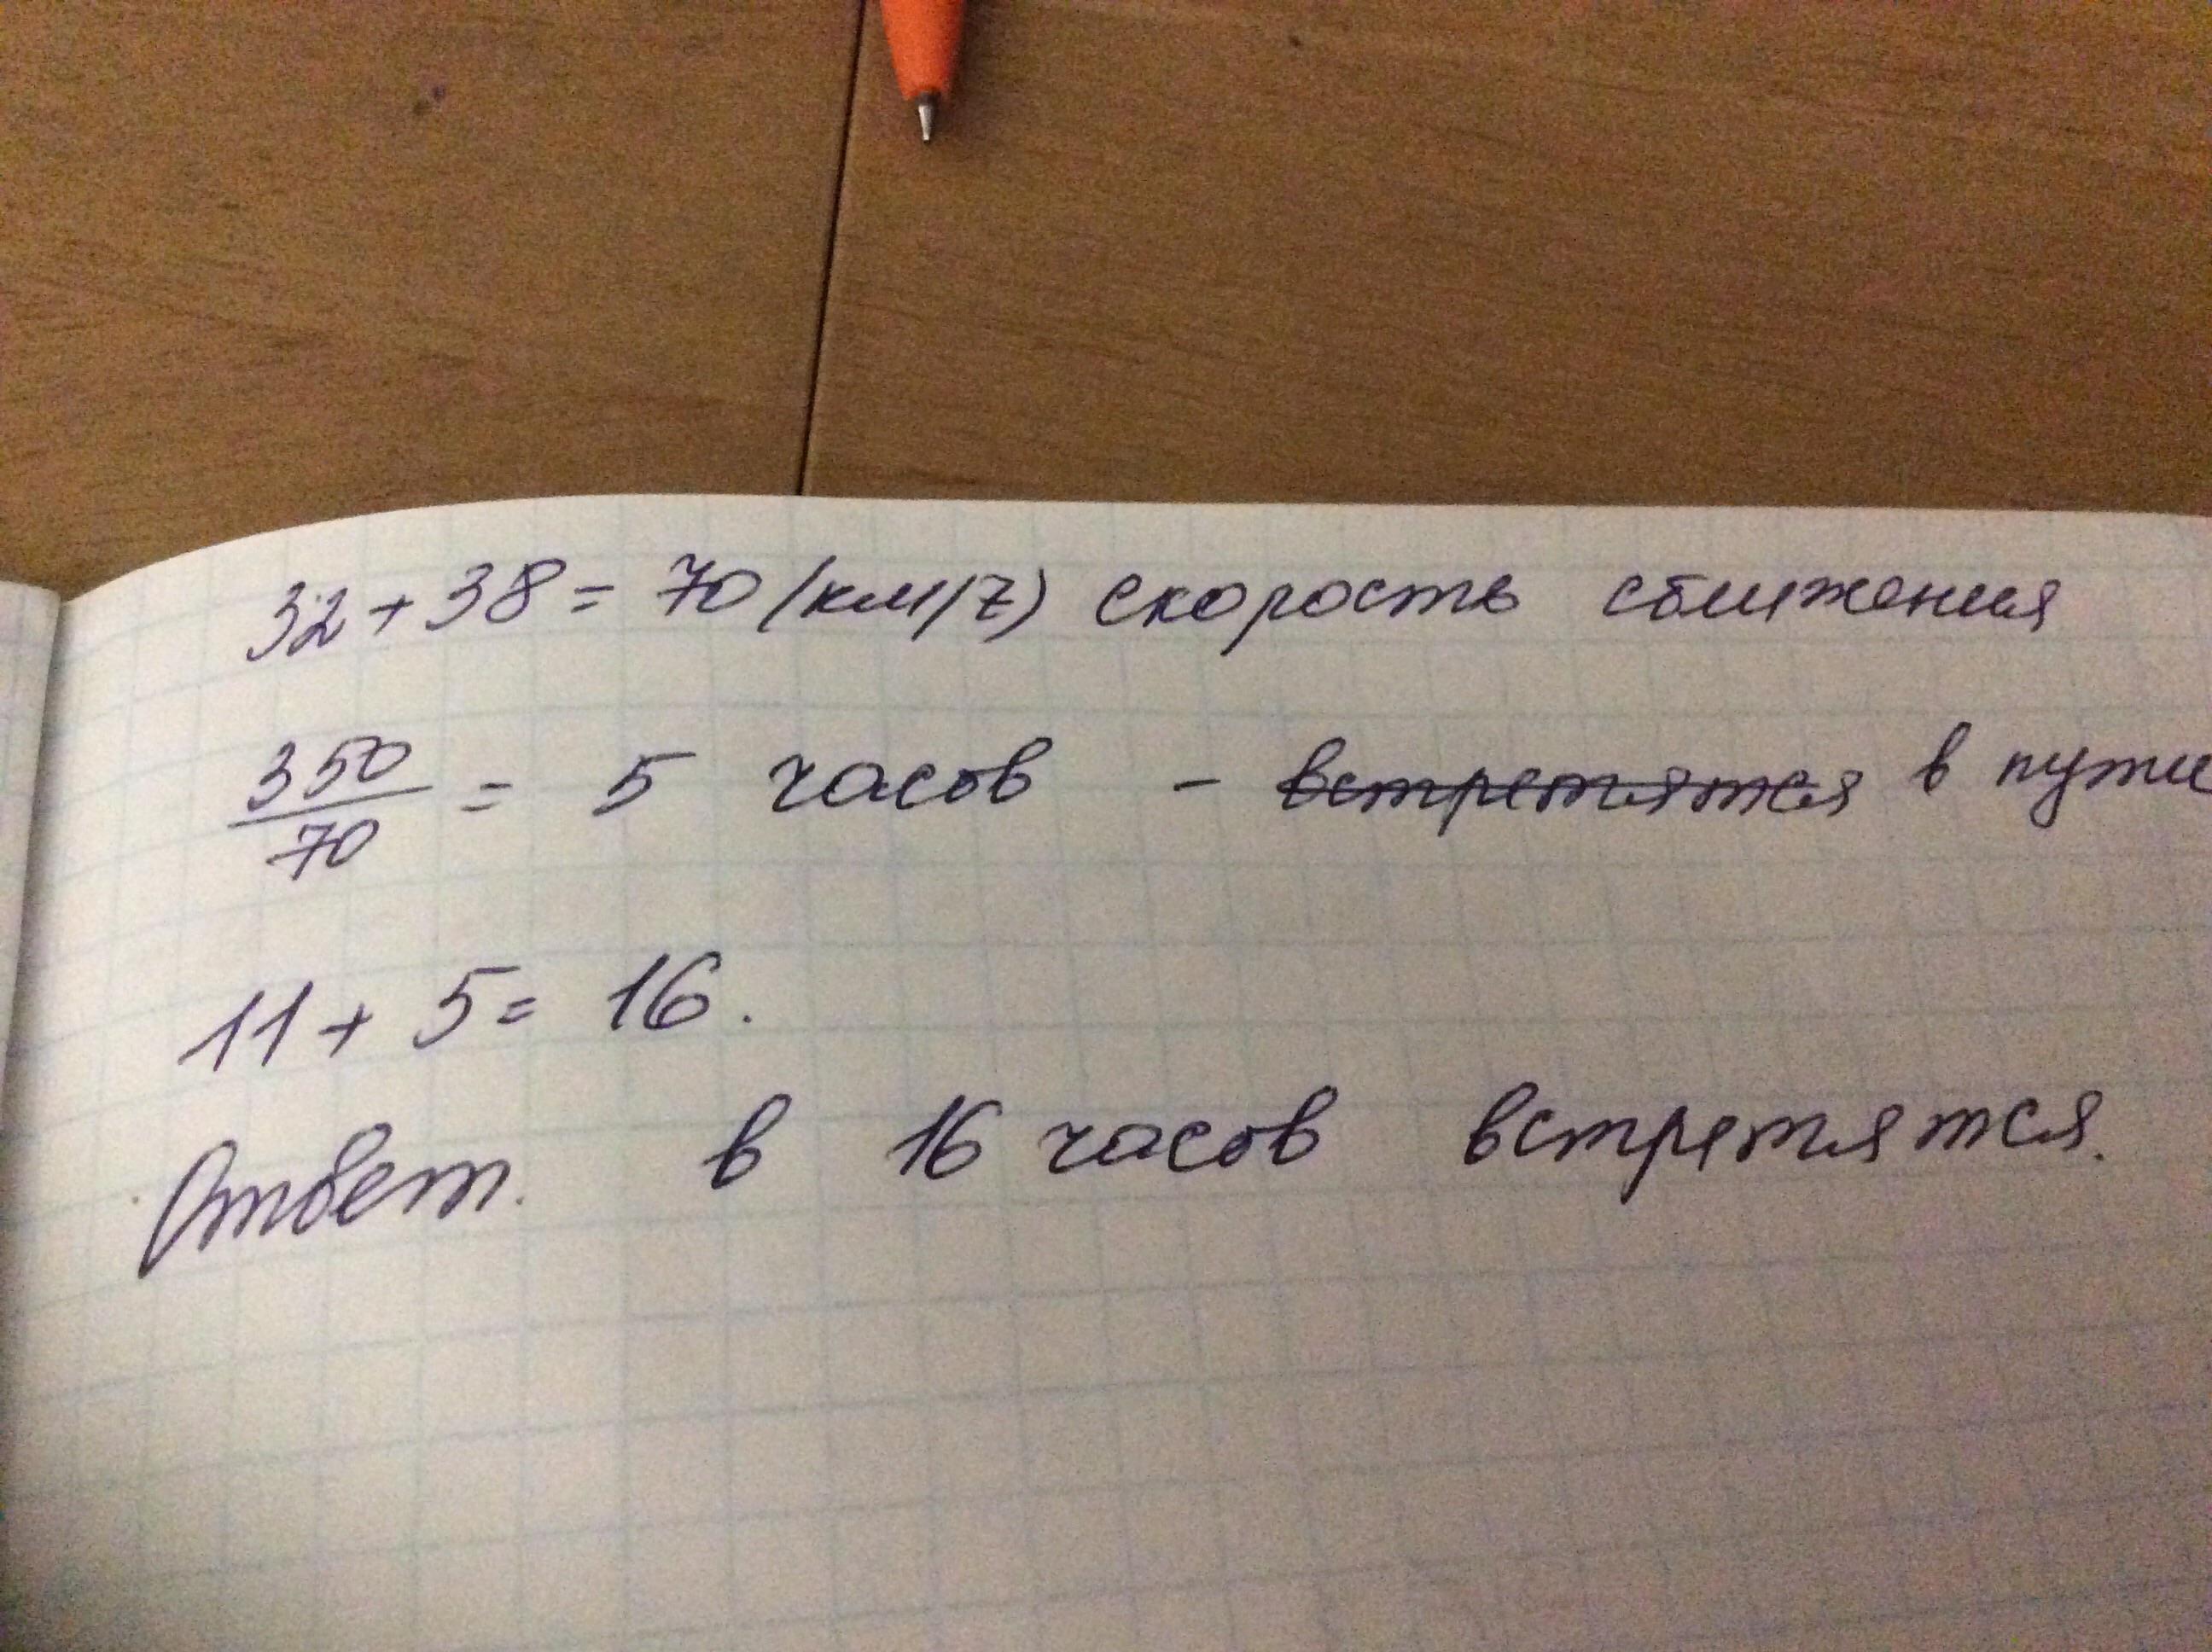 32 + 38 = 70 (км/ч) скорость сближения
350/70 = 5 часов - встретятся в пути
11 + 5 = 16.
Ответ. в 16 часов встретятся.